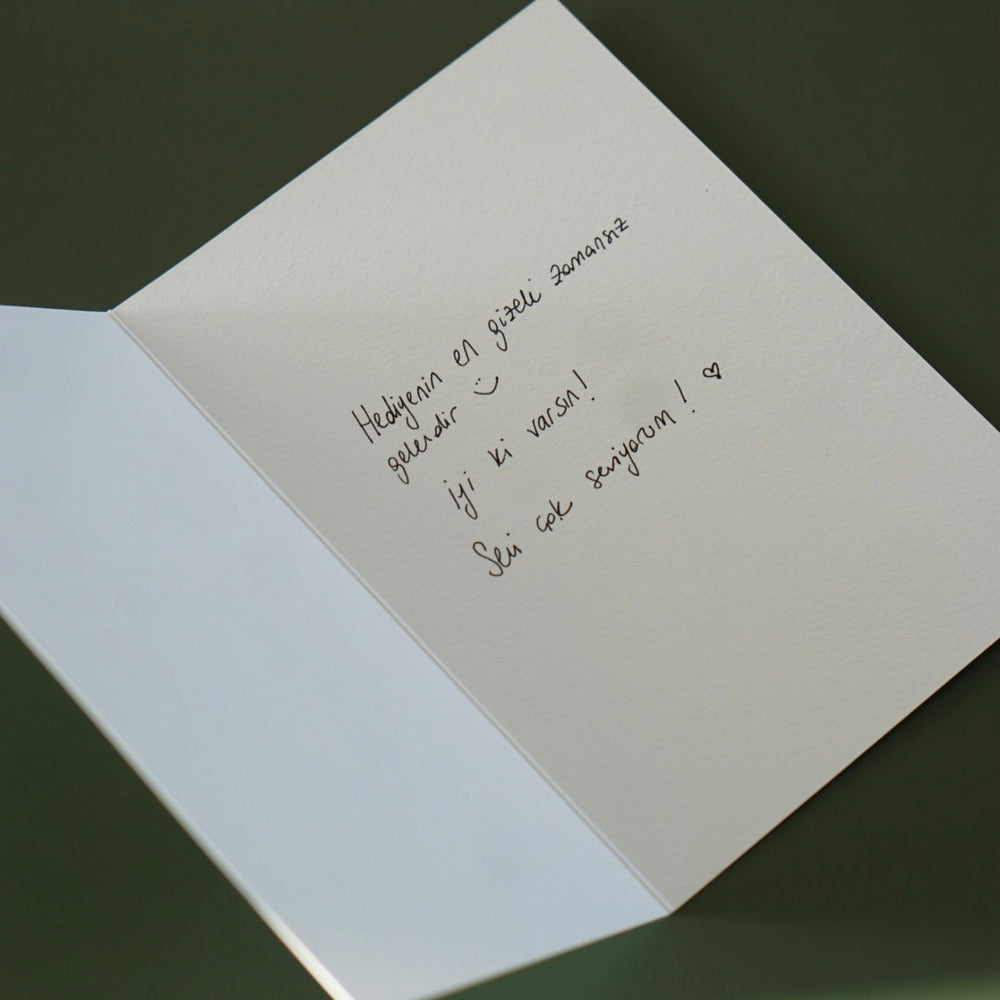 Hediyenin en güzeli zamansız
gelendir :)
iyi ki varsın!
Seni çok seviyorum! ♡